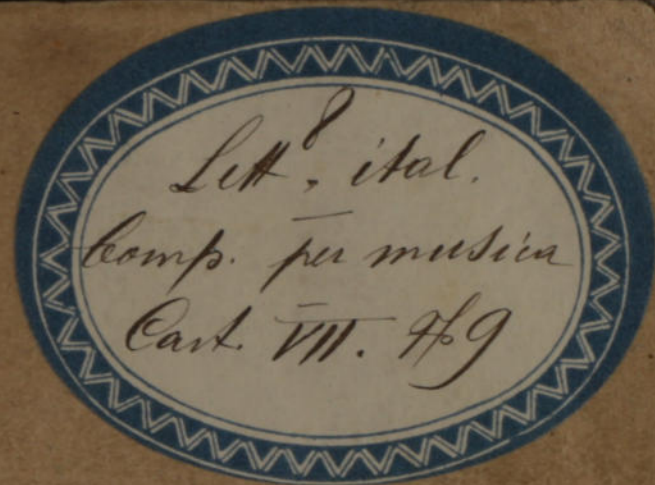 Lett.ª ital.
Comp. per musica
Cart. VII. № 9